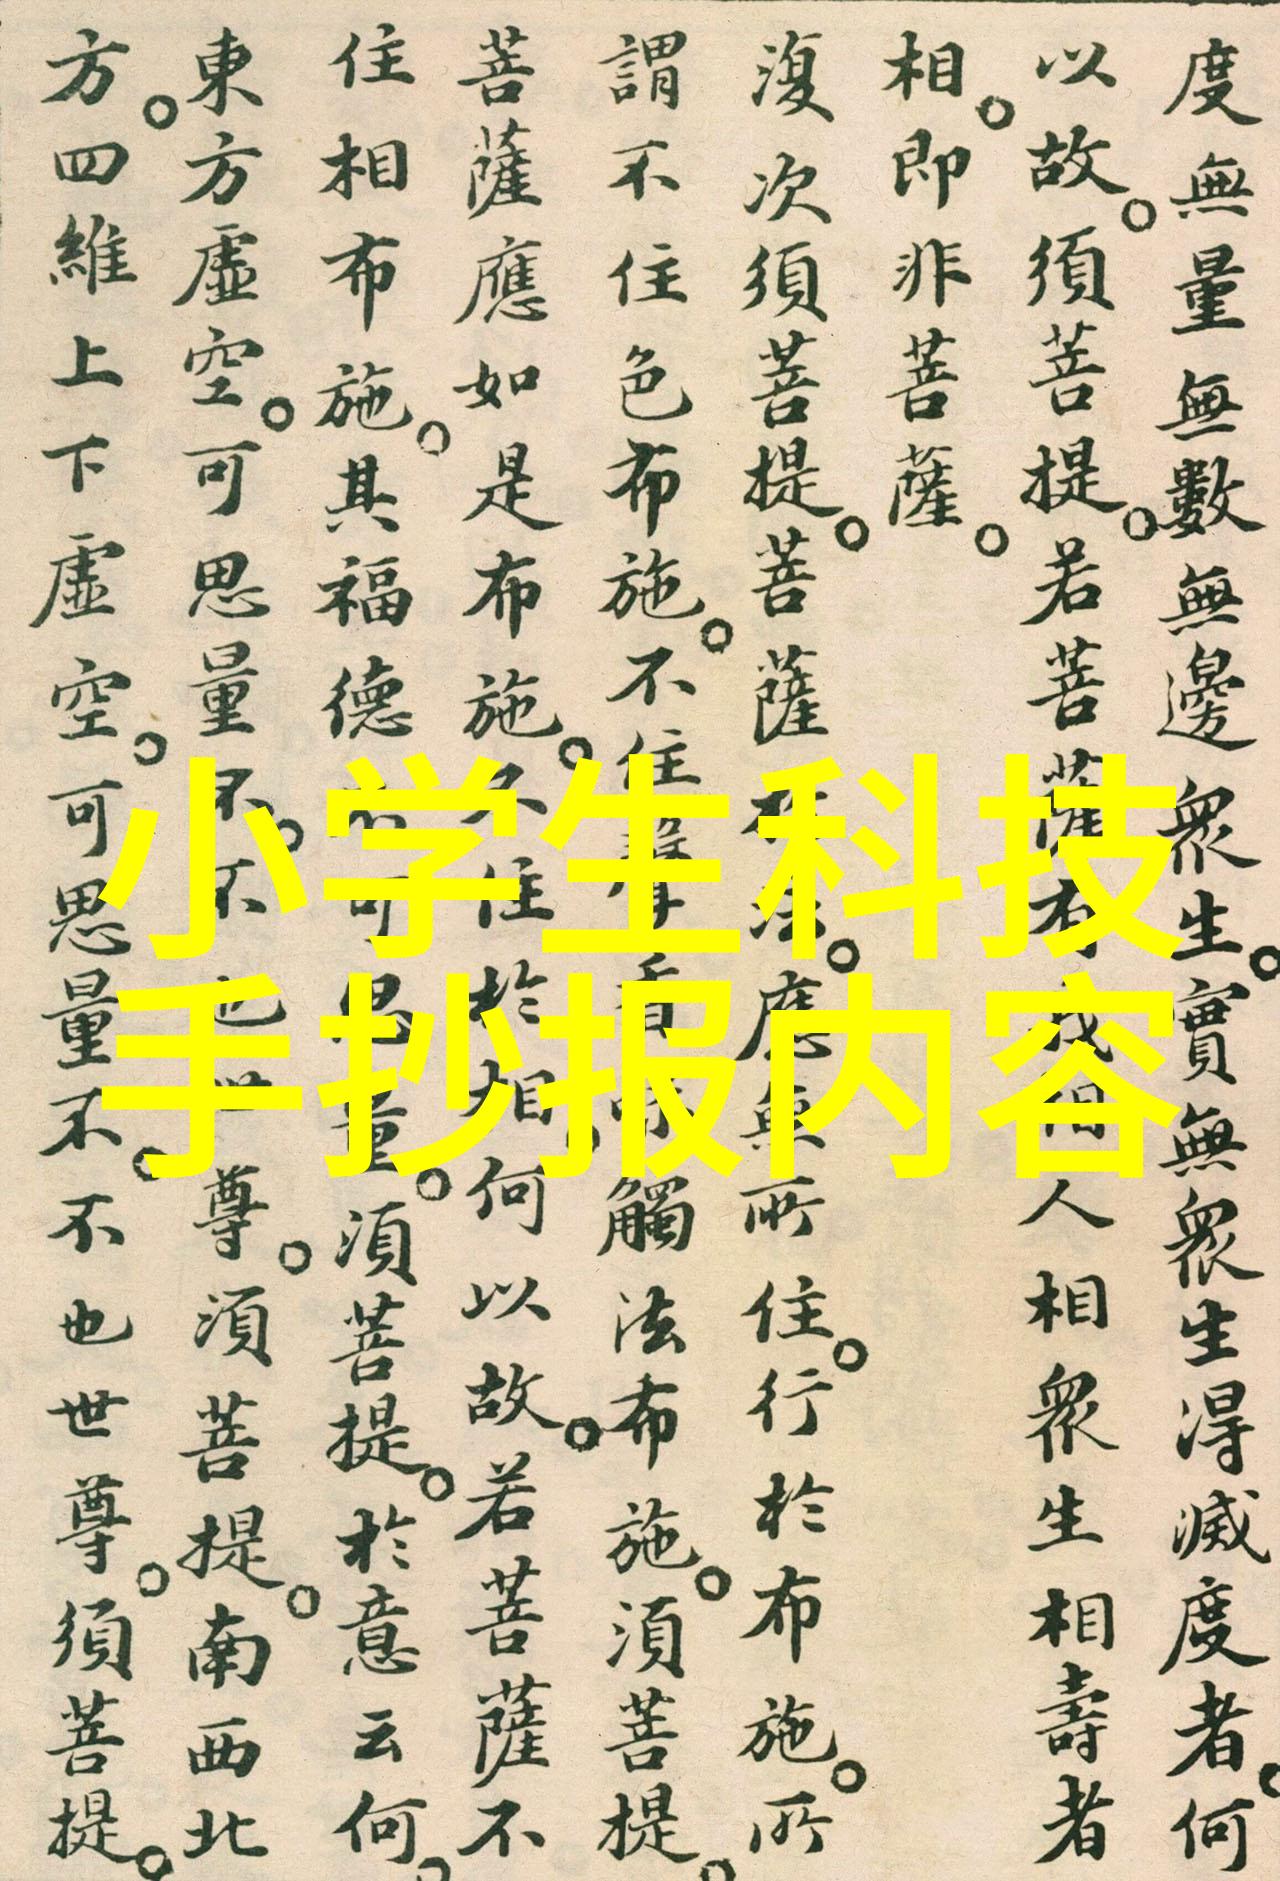 度無量無數無邊衆生。實無衆生得滅度者。何
以故。須菩提。若菩薩有我相人相衆生相壽者
相。即非菩薩。
復次須菩提。菩薩於法。應無所住。行於布施。所
謂不住色布施。不住聲香味觸法布施。須菩提。
菩薩應如是布施。不住於相。何以故。若菩薩不
住相布施。其福德不可思量。須菩提。於意云何。
東方虛空。可思量不。不也世尊。須菩提。南西北
方。四維上下虛空。可思量不。不也世尊。須菩提。
小学生科技
手抄报内容